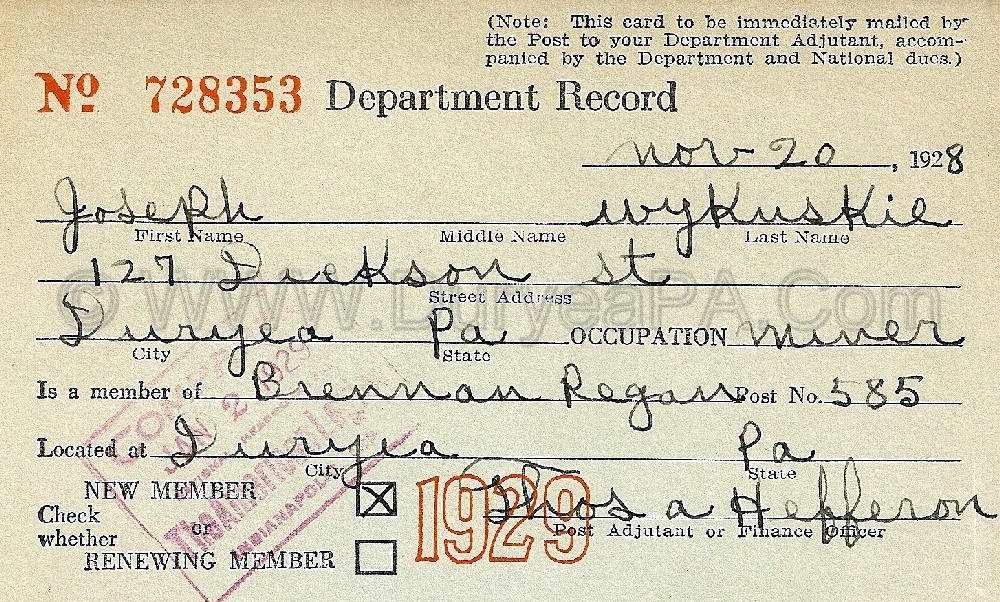 (Note: This card to be immediately mailed by
the Post to your Department Adjutant, accom-
panied by the Department and National dues.)
No 728353 Department Record
Nov 20, 1928
Joseph Wykuskie
First Name Middle Name Last Name
127 Dickson St
Street Address
Duryea Pa OCCUPATION Miner
City State
Is a member of Brennan Regan Post No. 585
Located at Duryea Pa
City State
NEW MEMBER
Check
or
whether
RENEWING MEMBER
1929
Thos a Hefferon
Post Adjutant or Finance Officer
JAN 2 1929
The American
INDIANAPOLIS
© WWW.DuryeaPA.Com